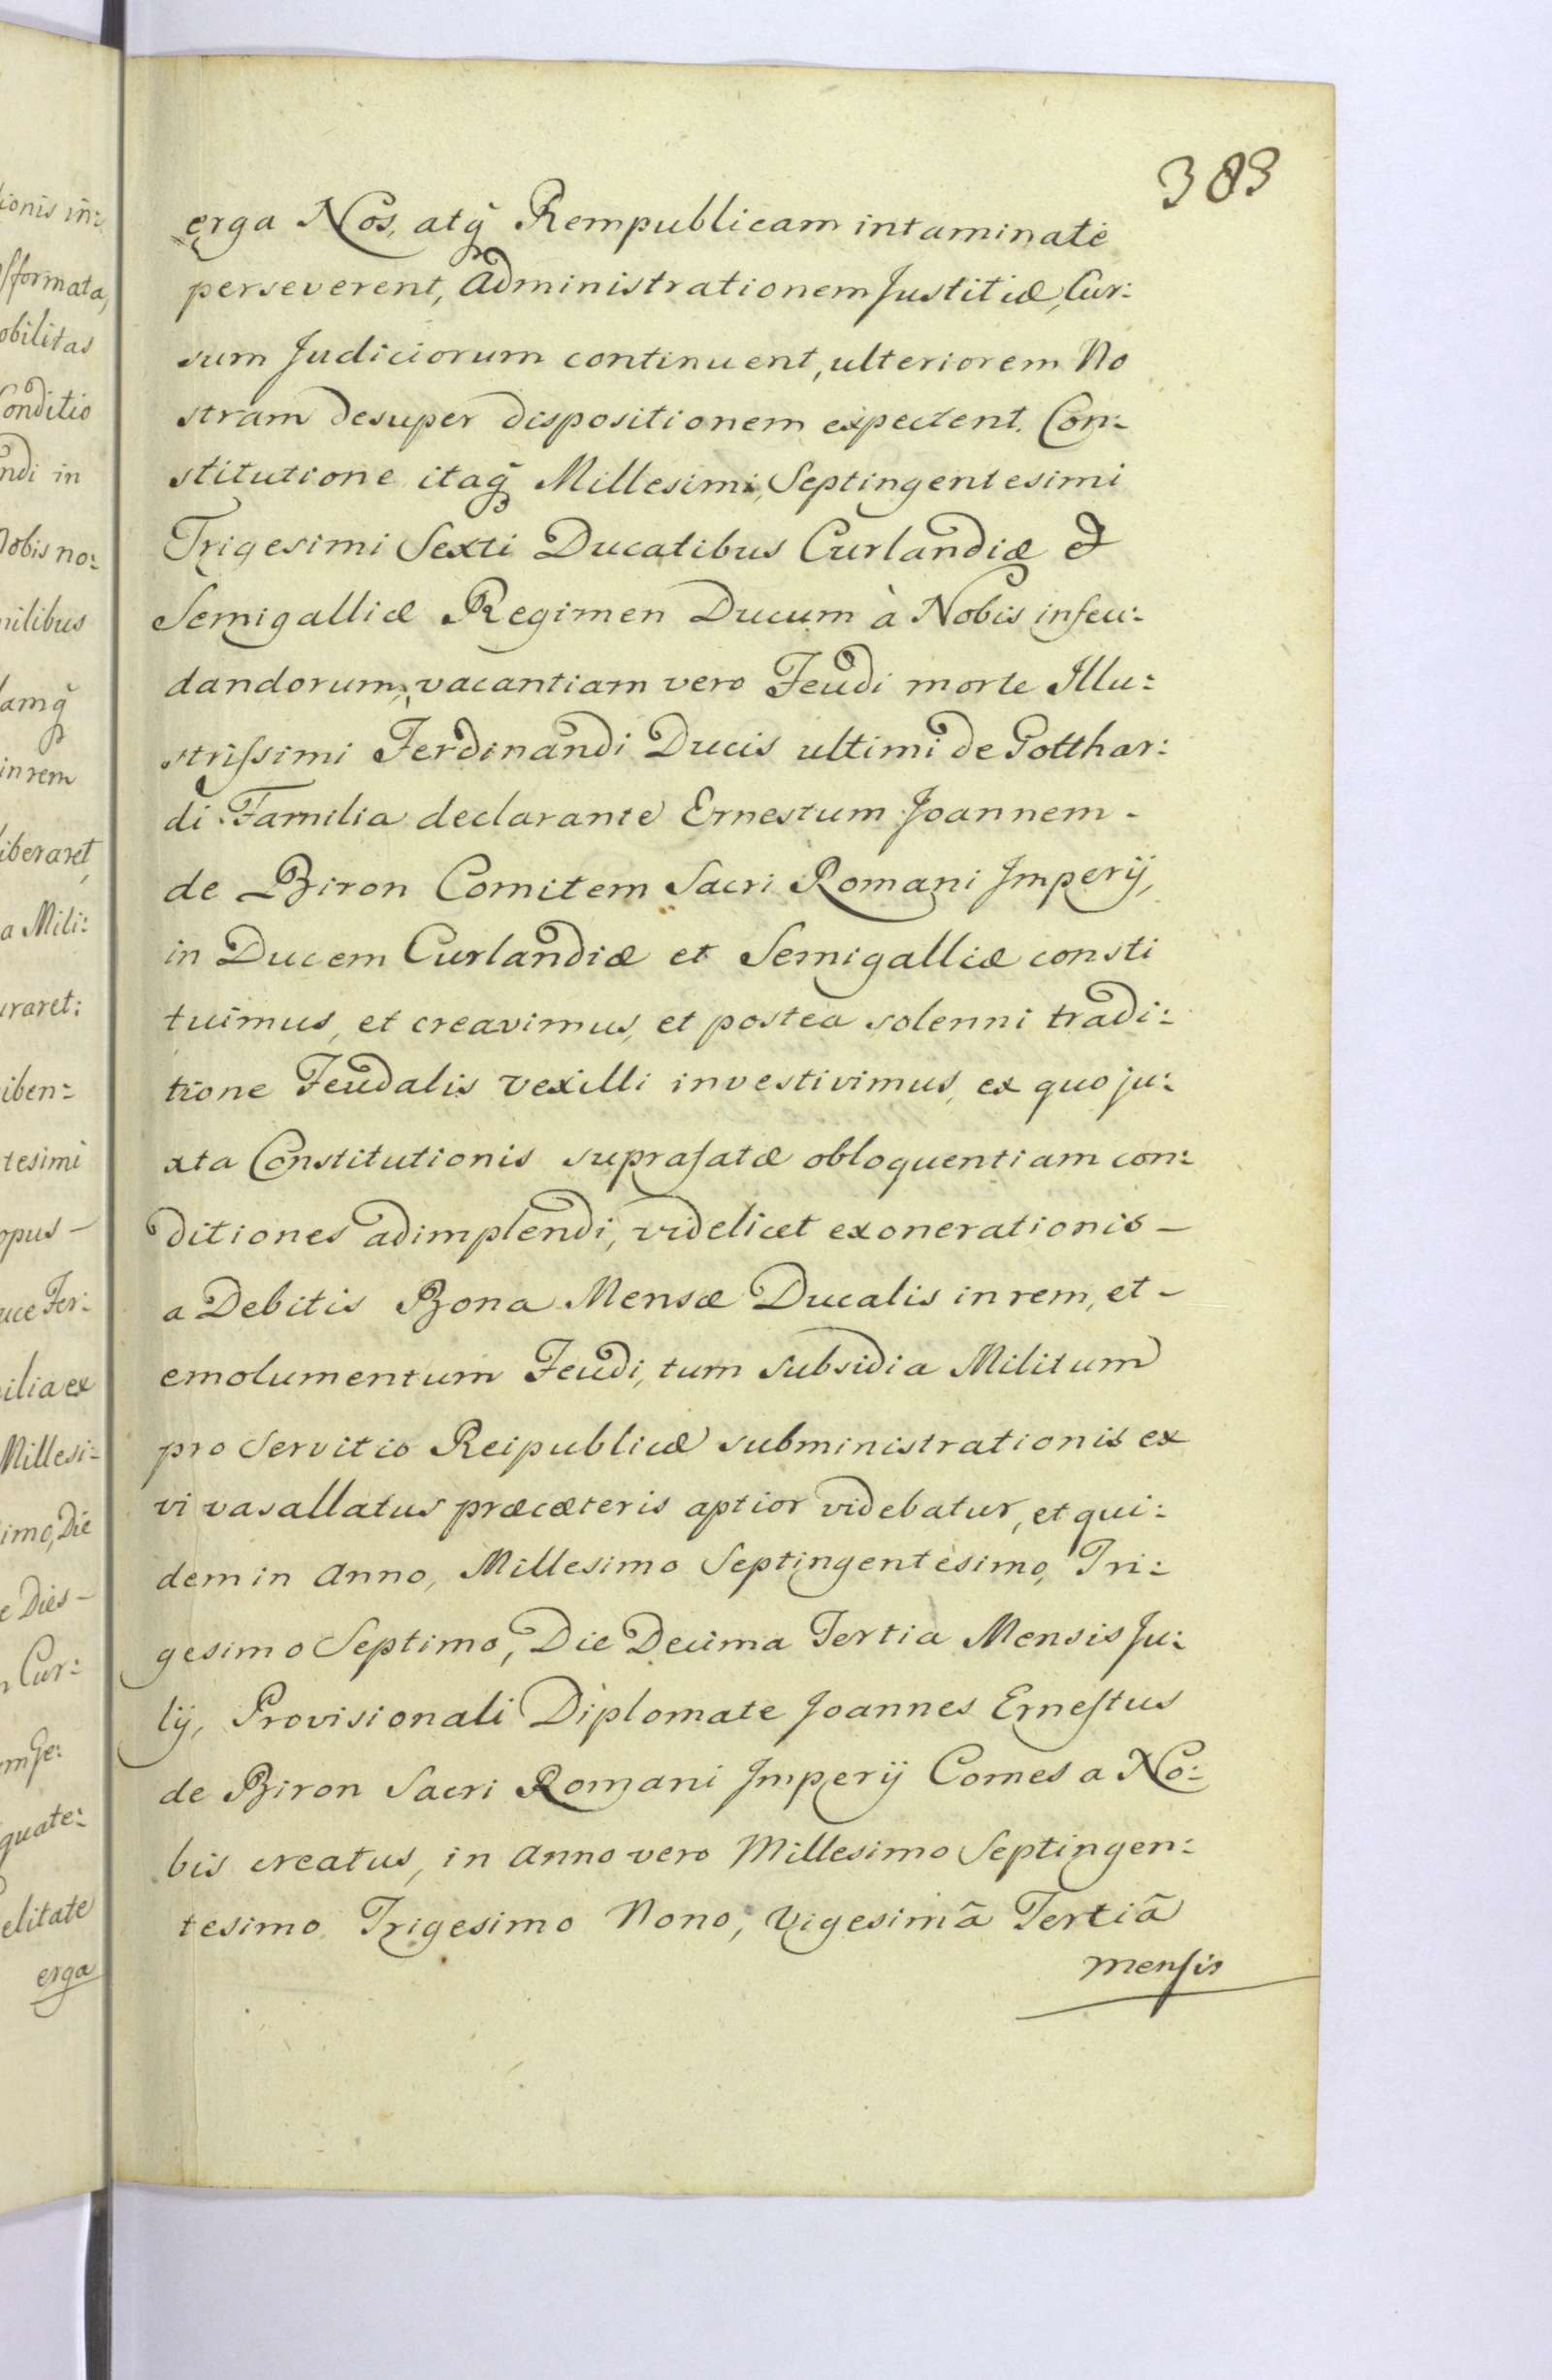 383
erga Nos, atq̃ Rempublicam intaminatè
perseverent, Administrationem Justitiæ, Cur:
sum Judiciorum continuent, ulteriorem No
stram desuper dispositionem expectent. Con:
stitutione itaq̃ Millesimi, Septingentesimi
Trigesimi Sexti Ducatibus Curlandiæ et
Semigalliæ Regimen Ducum à Nobis infeu:
dandorum, vacantiam vero Feudi morte Illu:
strissimi Ferdinandi Ducis ultimi de Gotthar:
di Familia declarante Ernestum Joannem -
de Biron Comitem Sacri Romani Imperÿ,
in Ducem Curlandiæ et Semigalliæ consti
tuimus, et creavimus, et postea solenni tradi:
tione Feudalis vexilli investivimus, ex quo ju:
xta Constitutionis suprafatæ obloquentiam con:
ditiones adimplendi, videlicet exonerationis -
a Debitis Bona Mensæ Ducalis in rem, et -
emolumentum Feudi, tum subsidia Militum
pro Servitio Reipublicæ subministrationis ex
vi vasallatus præcæteris aptior videbatur, et qui:
dem in Anno, Millesimo Septingentesimo, Tri:
gesimo Septimo, Die Decima Tertia Mensis Ju:
lÿ, Provisionali Diplomate Joannes Ernestus
de Biron Sacri Romani Imperÿ Comes a No:
bis creatus, in Anno vero Millesimo Septingen:
tesimo Trigesimo Nono, Vigesimã Tertiã
mensis
ionis in:
formata,
obilitas
Conditio
ndi in
Nobis no:
nilibus
amq̃
in rem
iberaret,
a Mili:
uraret:
iben:
tesimi
opus -
uce Fer:
ilia ex
Millesi-
imo, Die
e Dies -
n Cur:
m Se:
quate:
elitate
erga